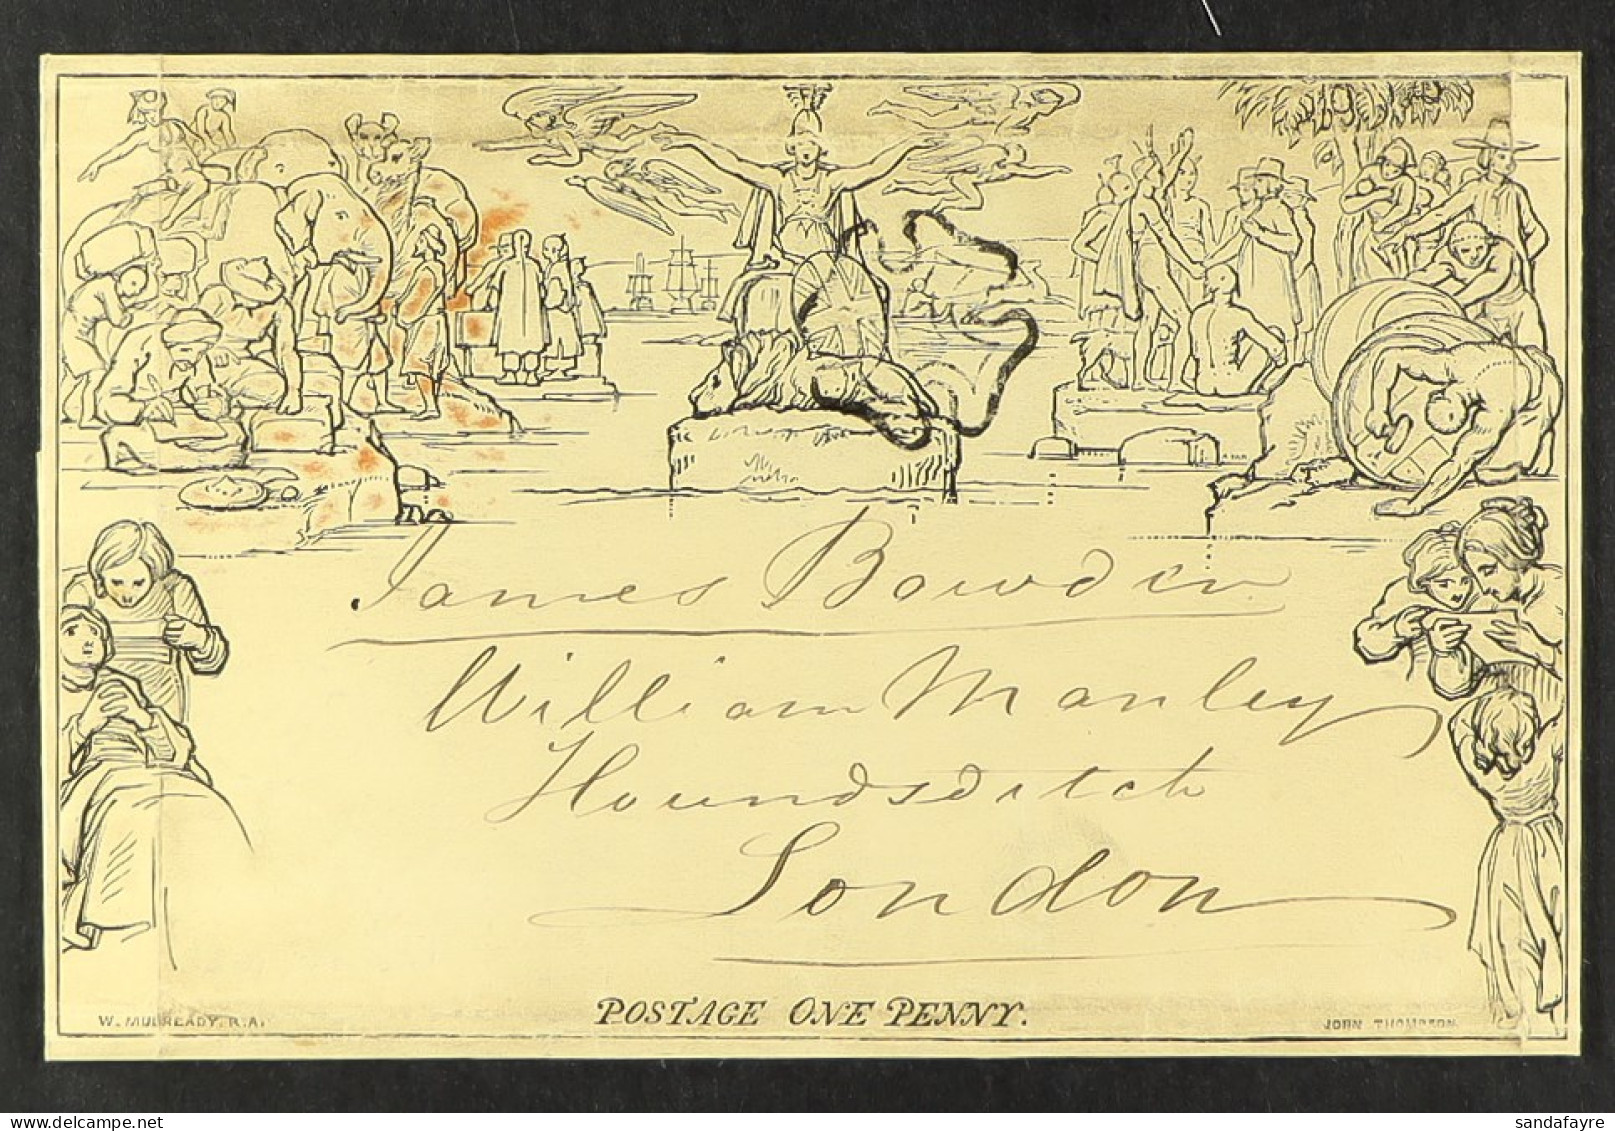 James Bowden
William Manley
Houndsditch
London
POSTAGE ONE PENNY.
W. MULREADY. R.A.
JOHN THOMPSON
sandafayre